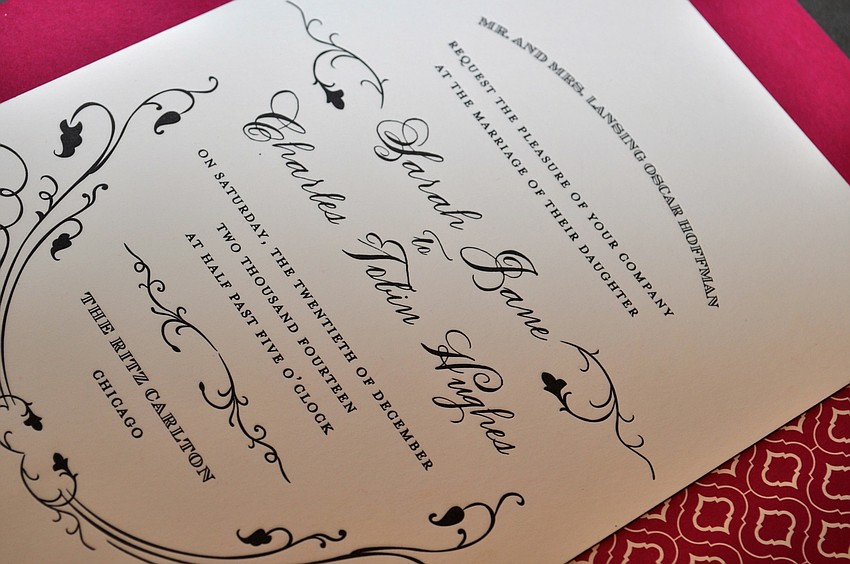 MR. AND MRS. LANSING OSCAR HOFFMAN
REQUEST THE PLEASURE OF YOUR COMPANY
AT THE MARRIAGE OF THEIR DAUGHTER
Sarah Jane
To
Charles Tobin Hughes
ON SATURDAY, THE TWENTIETH OF DECEMBER
TWO THOUSAND FOURTEEN
AT HALF PAST FIVE O'CLOCK
THE RITZ CARLTON
CHICAGO